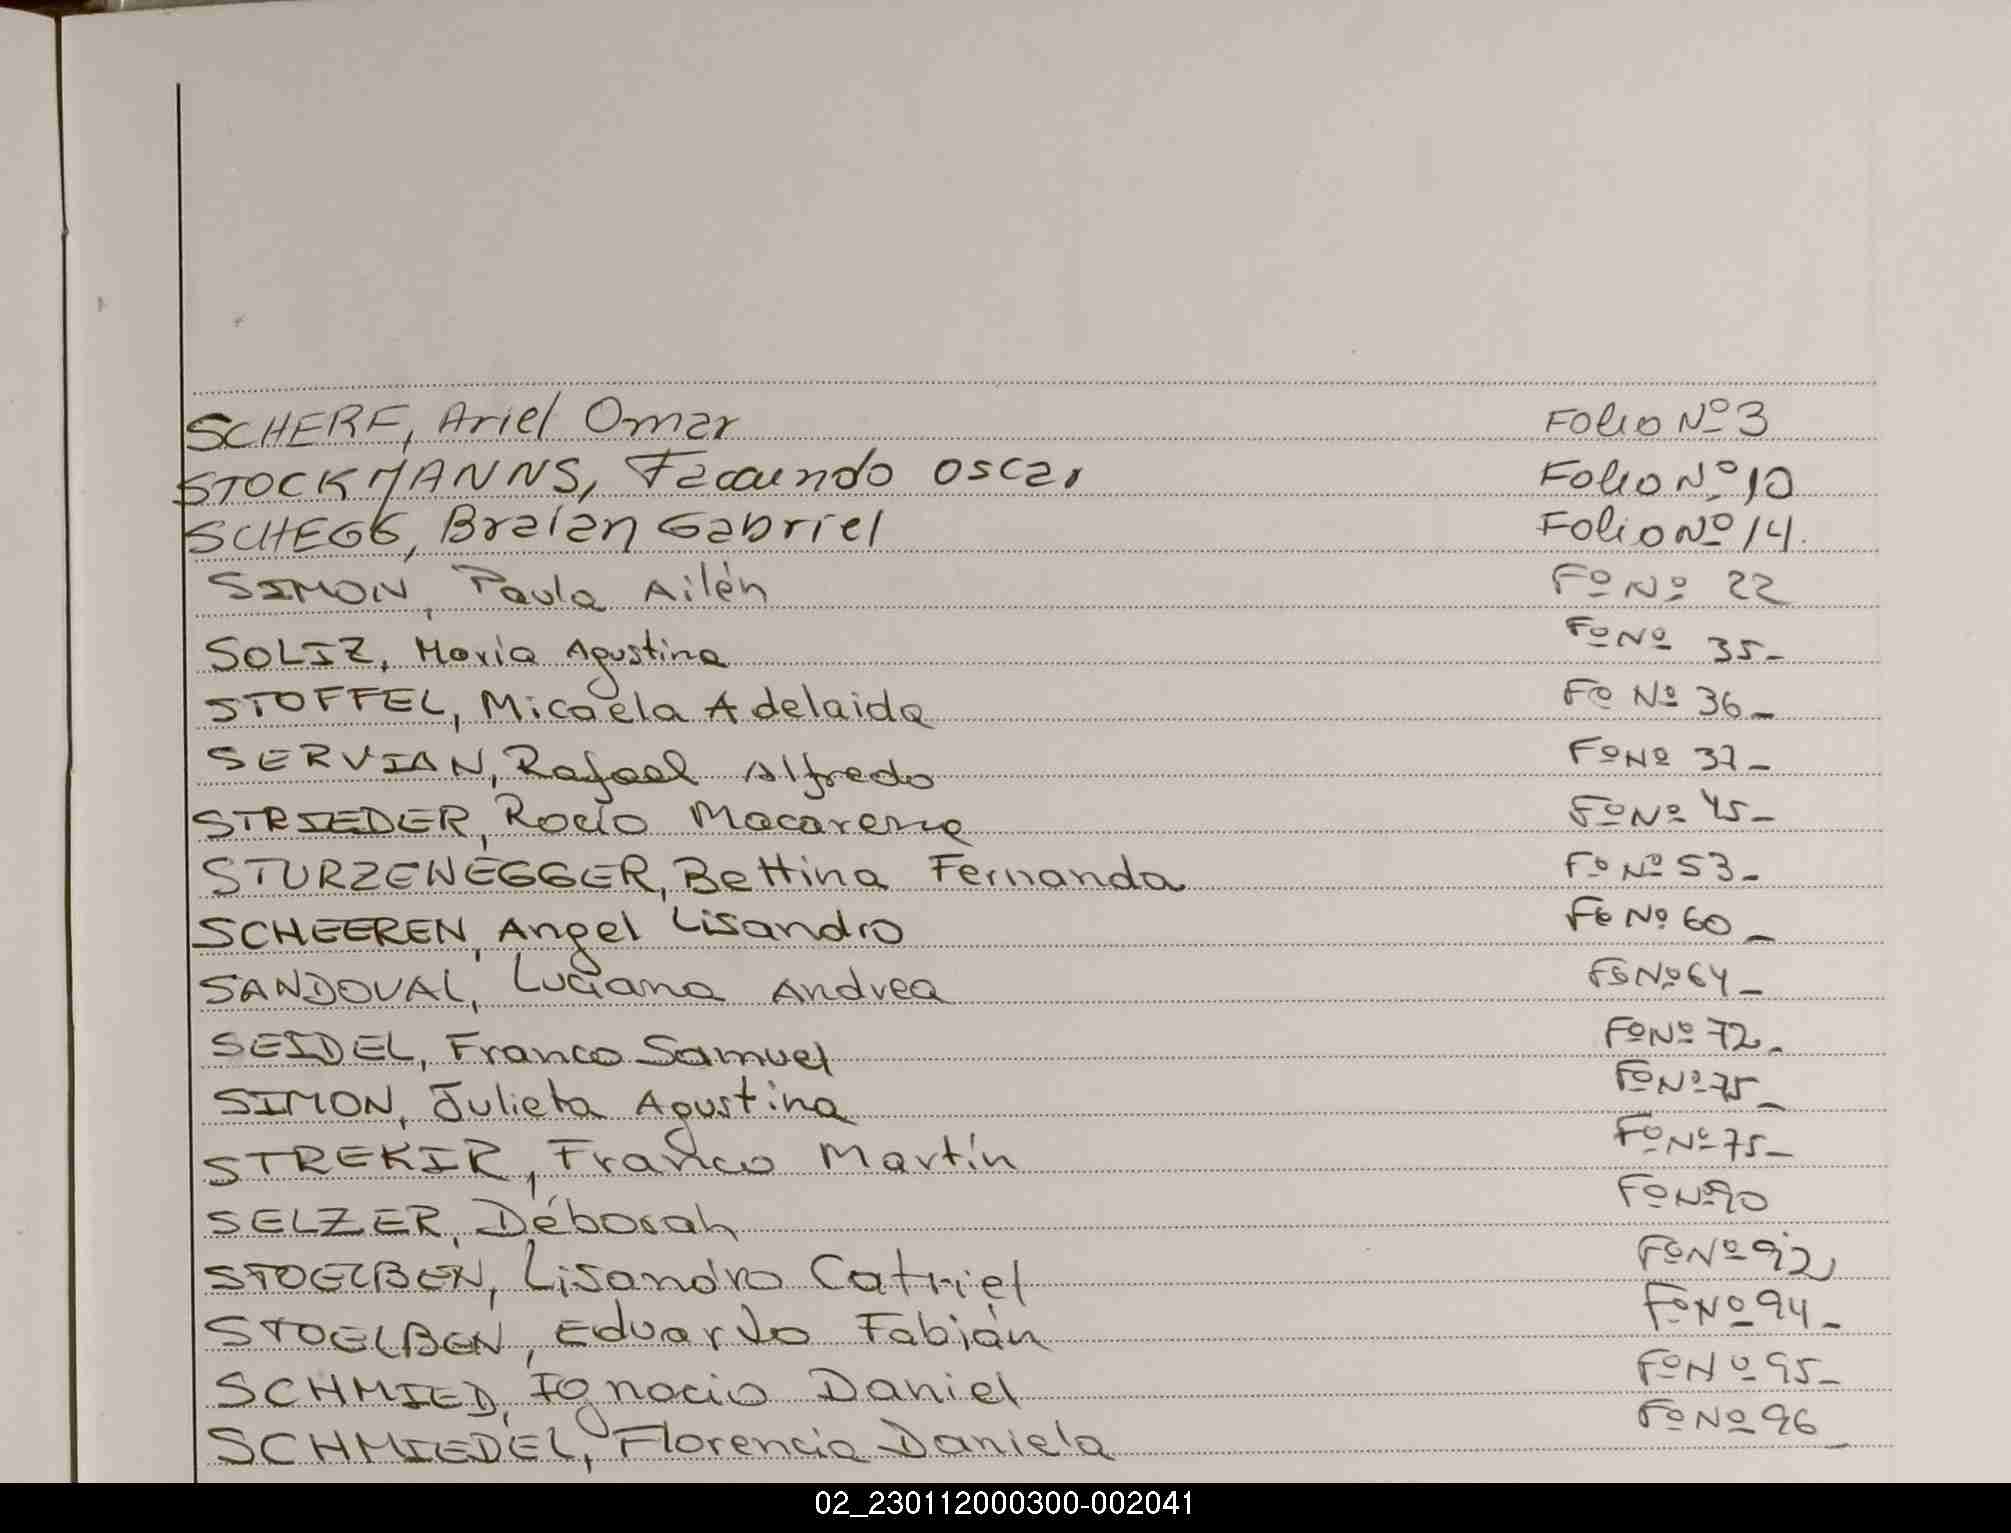 SCHERF, Ariel Omar Folio Nº 3
STOCKMANNS, Facundo Oscar Folio Nº 10
SCHEGG, Braian Gabriel Folio Nº 14.
SIMON, Paula Ailén Fº Nº 22
SOLIZ, María Agustina Fº Nº 35-
STOFFEL, Micaela Adelaida Fº Nº 36-
SERVIAN, Rafael Alfredo Fº Nº 37-
STRIEDER, Rocío Macarena Fº Nº 45-
STURZENEGGER, Bettina Fernanda Fº Nº 53-
SCHEEREN, Angel Lisandro Fº Nº 60-
SANDOVAL, Luciana Andrea Fº Nº 64-
SEIDEL, Franco Samuel Fº Nº 72-
SIMON, Julieta Agustina Fº Nº 75-
STREKIR, Franco Martín Fº Nº 75-
SELZER, Déborah Fº Nº 90
STOELBEN, Lisandro Catriel Fº Nº 92
STOELBEN, Eduardo Fabián Fº Nº 94-
SCHMIED, Ignacio Daniel Fº Nº 95-
SCHMIEDEL, Florencia Daniela Fº Nº 96-
02_230112000300-002041